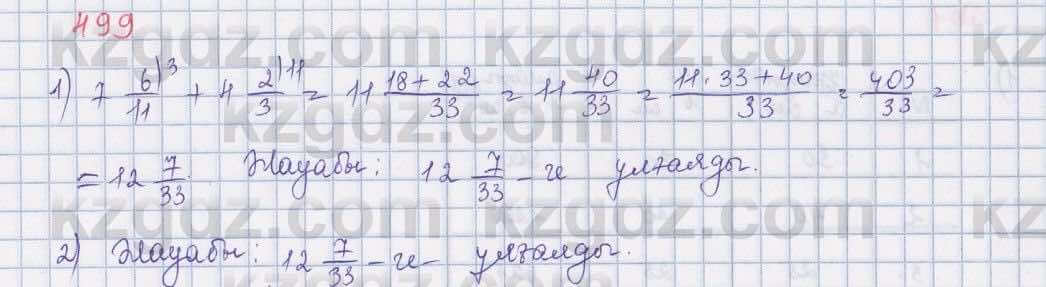 499
1) 7 6/11 )3 + 4 2/3 )11 = 11 18+22/33 = 11 40/33 = 11·33+40/33 = 403/33 =
= 12 7/33. Жауабы: 12 7/33 - ге ұлғаяды.
2) Жауабы: 12 7/33 - ге - ұлғалды.